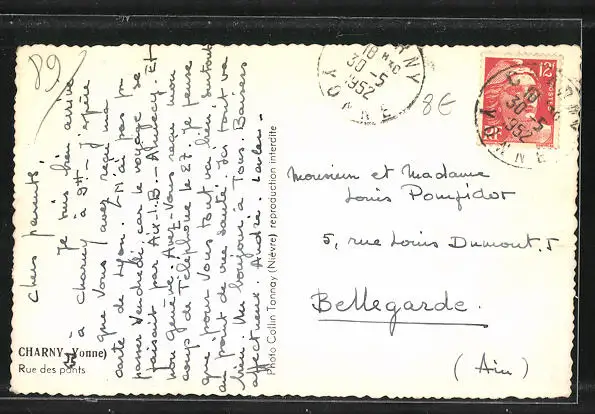 89
Chers parents,
Je suis bien arrivé
à Charny à 9H - J'espère
que vous avez reçu ma
carte de Lyon. Je n'ai pas pu
passer Vendredi car le voyage se
faisait par Aix-l.B. - Annecy. Et
non Genève. Avez-vous reçu mon
coup de Téléphone le 27. Je pense
que pour vous tout va bien surtout
au point de vue santé. Ici tout va
bien. Un bonjour à Tous. Baisers
affectueux. André.
CHARNY (Yonne)
Rue des ponts
Photo Collin Tannay (Nièvre) reproduction interdite
CHARNY
18 H
30-5
1952
YONNE
8€
12F
POSTES
RF
18
30-5
1952
YONNE
Monsieur et Madame
Louis
5, rue Louis Dumont. 5
Bellegarde.
(Ain)